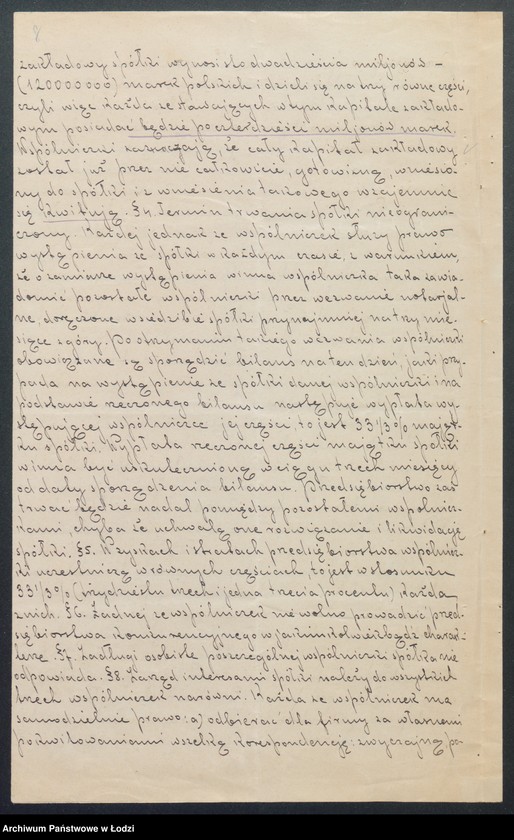 8
zakładowy spółki wynosi sto dwadzieścia miljonów –
(120000000) marek polskich i dzieli się na trzy równe części,
czyli więc każda ze stawających w tym kapitale zakłado-
wym posiadać będzie po czterdzieści miljonów marek.
Wspólniczki zaznaczają, że cały kapitał zakładowy
został już przez nie całkowicie, gotowizną, wniesio-
ny do spółki i z wniesienia takowego wzajemnie
się kwitują. §4. Termin trwania spółki nieograni-
czony. Każdej jednak ze wspólniczek służy prawo
wystąpienia ze spółki w każdym czasie, z warunkiem,
że o zamiarze wystąpienia winna wspólniczka taka zawia-
domić pozostałe wspólniczki przez wezwanie notarjal-
ne, doręczone w siedzibie spółki przynajmniej na trzy mie-
siące z góry. Po otrzymaniu takiego wezwania wspólniczki
obowiązane są sporządzić bilans na ten dzień, jaki przy-
pada na wystąpienie ze spółki danej wspólniczki i na
podstawie rzeczonego bilansu następuje wypłata wy-
stępującej wspólniczce jej części, to jest 33 1/3% mająt-
ku spółki. Wypłata rzeczonej części majątku spółki
winna być uskutecznioną w ciągu trzech miesięcy
od daty sporządzenia bilansu. Przedsiębiorstwo zaś
trwać będzie nadal pomiędzy pozostałemi wspólnicz-
kami, chyba że uchwalą one rozwiązanie i likwidację
spółki. §5. W zyskach i stratach przedsiębiorstwa wspólnicz-
ki uczestniczą w równych częściach, to jest w stosunku
33 1/3% (trzydzieści trzech i jedna trzecia procentu) każda
z nich. §6. Żadnej ze wspólniczek nie wolno prowadzić przed-
siębiorstwa konkurencyjnego w jakimkolwiekbądź charak-
terze. §7. Za długi osobiste poszczególnej wspólniczki spółka nie
odpowiada. §8. Zarząd interesami spółki należy do wszystkich
trzech wspólniczek narówni. Każda ze wspólniczek ma
samodzielnie prawo: a) odbierać dla firmy za własnemi
pokwitowaniami wszelką korespondencję: zwyczajną, po-
Archiwum Państwowe w Łodzi